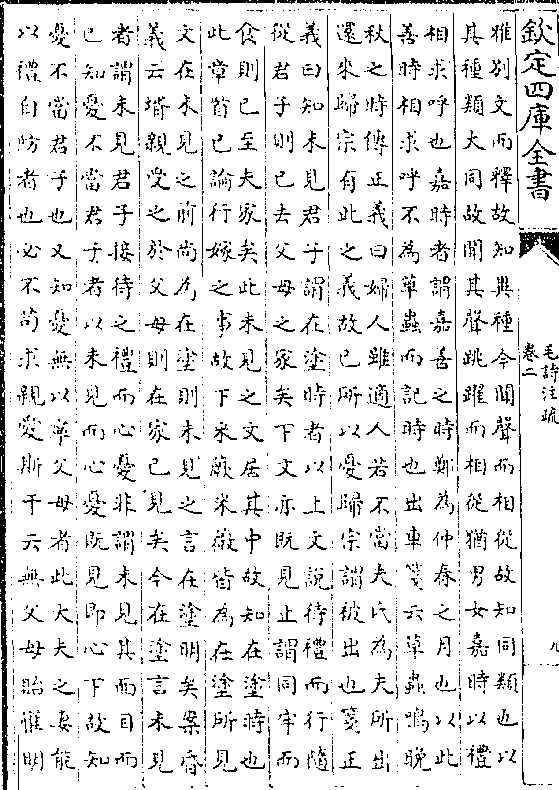 欽定四庫全書
毛詩注疏
卷二
九
雅别文而釋故知異種今聞聲而相從故知同類也以
其種類大同故聞其聲跳躍而相從猶男女嘉時以禮
相求呼也嘉時者謂嘉善之時鄭為仲春之月也以此
善時相求呼不為草蟲而記時也出車箋云草蟲鳴晚
秋之時傳正義曰婦人雖適人若不當夫氏為夫所出
還來歸宗有此之義故已所以憂歸宗謂被出也箋正
義曰知未見君子謂在塗時者以上文說待禮而行隨
從君子則已去父母之家矣下文亦既見止謂同牢而
食則已至夫家矣此未見之文居其中故知在塗時也
此章首已論行嫁之事故下采蕨采薇皆為在塗所見
文在未見之前尚為在塗則未見之言在塗明矣案昏
義云壻親受之於父母則在家已見矣今在塗言未見
者謂未見君子接待之禮而心憂非謂未見其面目而
已知憂不當君子者以未見而心憂既見即心下故知
憂不當君子也又知憂無以寧父母者此大夫之妻能
以禮自防者也必不苟求親愛斯干云無父母貽懼明